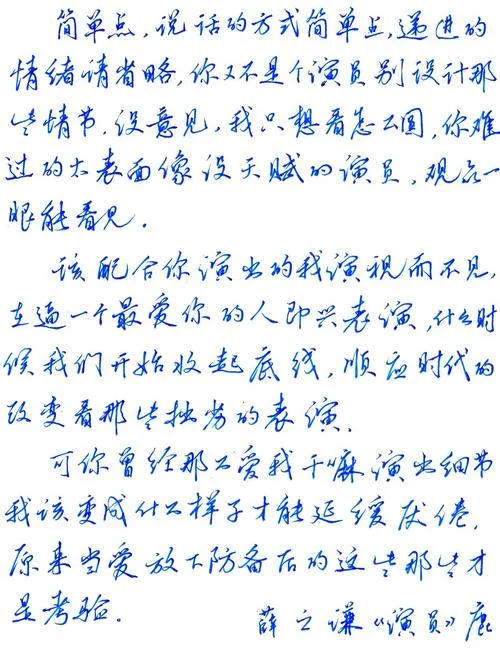 简单点，说话的方式简单点，递进的
情绪请省略，你又不是个演员别设计那
些情节，没意见，我只想看怎么圆，你难
过的太表面像没天赋的演员，观众一
眼能看见。
该配合你演出的我演视而不见，
在逼一个最爱你的人即兴表演，什么时
候我们开始收起底线，顺应时代的
改变看那些拙劣的表演。
可你曾经那么爱我干嘛演出细节
我该变成什么样子才能延缓厌倦，
原来当爱放下防备后的这些那些才
是考验。
薛之谦《演员》鹿